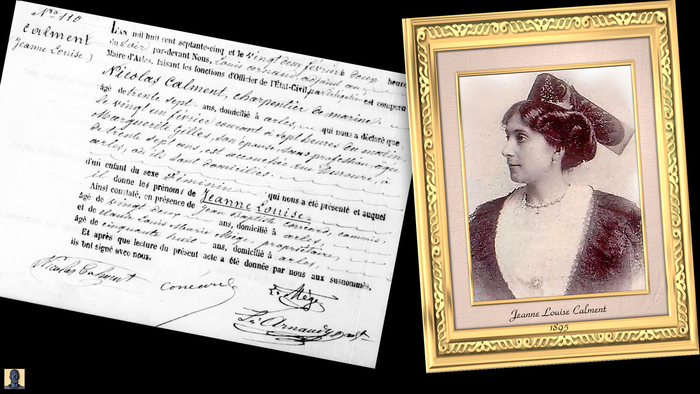 N.ro 110
Calment
(Jeanne Louise)
L'AN mil huit cent septante-cinq et le vingt deux février deux heures
du soir par-devant Nous, Louis Arnaud, adjoint au
Maire d'Arles, faisant les fonctions d'Officier de l'État-Civil, par délégation est comparu
Nicolas Calment, charpentier de marine,
âgé de trente sept ans, domicilié à arles qui nous a déclaré que
le vingt un février courant à sept heures du matin
Marguerite Gilles, son épouse, sans profession, âgée
de trente sept ans, est accouchée
arles, où ils sont domiciliés
d'un enfant du sexe féminin qui nous a été présenté et auquel
il donne les prénoms de Jeanne Louise.
Ainsi constaté, en présence de Jean Baptiste Concard, commis,
âgé de vingt deux ans, domicilié à arles,
et de Louis Marie Mège, propriétaire,
âgé de cinquante huit ans, domicilié à arles
Et après que lecture du présent acte a été donnée par nous aux susnommés,
ils ont signé avec nous.
Nicolas Calment
Mège
Ls. Arnaud
Jeanne Louise Calment
1895